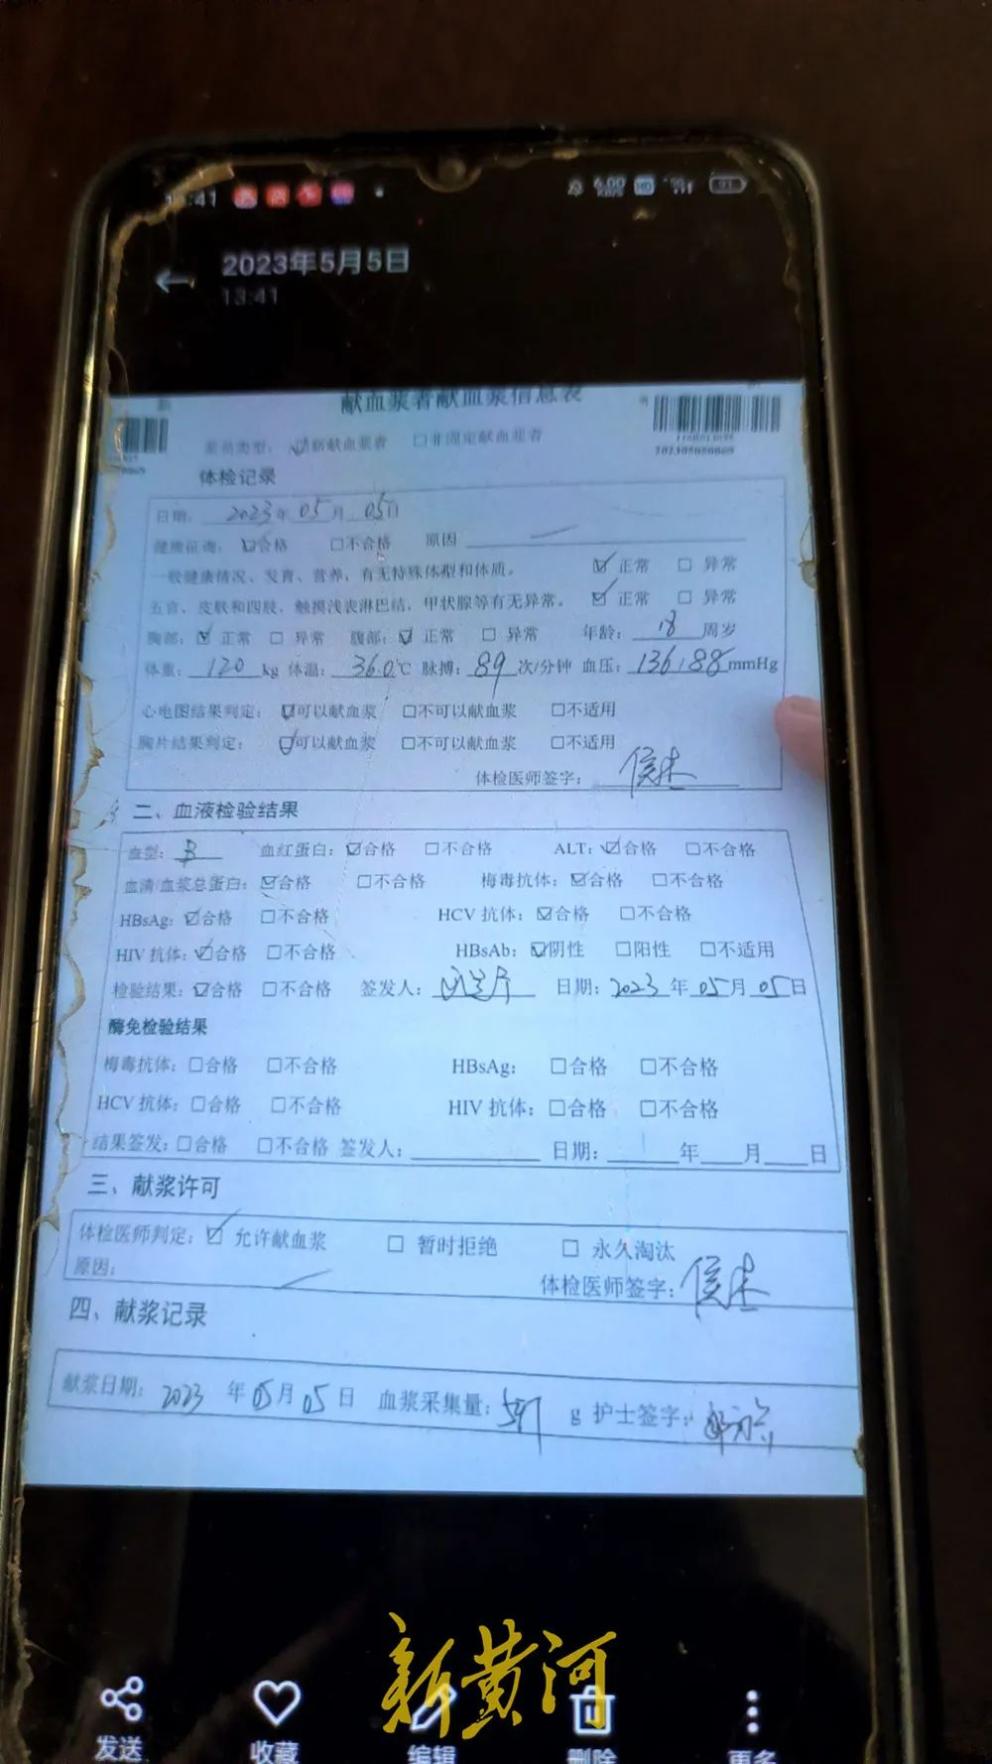 2023年5月5日
13:41
献血浆者献血浆信息表
浆员类型: 献血浆者 □非固定献血浆者
体检记录
日期: 2023年05月05日
健康征询: ☑合格 □不合格 原因
一般健康情况、发育、营养,有无特殊体型和体质。 ☑正常 □异常
五官、皮肤和四肢,触摸浅表淋巴结,甲状腺等有无异常。 ☑正常 □异常
胸部: ☑正常 □异常 腹部: ☑正常 □异常 年龄: 18 周岁
体重: 120 kg 体温: 36.0℃ 脉搏: 89次/分钟 血压: 136/88mmHg
心电图结果判定: ☑可以献血浆 □不可以献血浆 □不适用
胸片结果判定: ☑可以献血浆 □不可以献血浆 □不适用
体检医师签字:
二、血液检验结果
血型: B 血红蛋白: ☑合格 □不合格 ALT: ☑合格 □不合格
血清/血浆总蛋白: ☑合格 □不合格 梅毒抗体: ☑合格 □不合格
HBsAg: ☑合格 □不合格 HCV 抗体: ☑合格 □不合格
HIV 抗体: ☑合格 □不合格 HBsAb: ☑阴性 □阳性 □不适用
检验结果: ☑合格 □不合格 签发人: 日期: 2023年05月05日
酶免检验结果
梅毒抗体: □合格 □不合格 HBsAg: □合格 □不合格
HCV 抗体: □合格 □不合格 HIV 抗体: □合格 □不合格
结果签发: □合格 □不合格 签发人: 日期: 年 月 日
三、献浆许可
体检医师判定: ☑ 允许献血浆 □ 暂时拒绝 □ 永久淘汰
原因: 体检医师签字:
四、献浆记录
献浆日期: 2023 年05月05日 血浆采集量: g 护士签字:
新黄河
发送 收藏 编辑 删除 更多